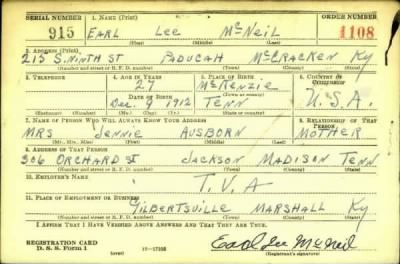 SERIAL NUMBER 1. NAME (Print) ORDER NUMBER
915 EARL LEE McNEIL 1108
(First) (Middle) (Last)
2. ADDRESS (Print)
215 S. NINTH ST PADUCAH McCRACKEN KY
(Number and street or R. F. D. number) (Town) (County) (State)
3. TELEPHONE 4. AGE IN YEARS 5. PLACE OF BIRTH 6. COUNTRY OF CITIZENSHIP
27 McKENZIE
DATE OF BIRTH (Town or county)
Dec. 9 1912 TENN U.S.A.
(Exchange) (Number) (Mo.) (Day) (Yr.) (State or country)
7. NAME OF PERSON WHO WILL ALWAYS KNOW YOUR ADDRESS 8. RELATIONSHIP OF THAT PERSON
MRS JENNIE AUSBORN MOTHER
(Mr., Mrs., Miss) (First) (Middle) (Last)
9. ADDRESS OF THAT PERSON
306 ORCHARD ST JACKSON MADISON TENN
(Number and street or R. F. D. number) (Town) (County) (State)
10. EMPLOYER'S NAME
T.V.A
11. PLACE OF EMPLOYMENT OR BUSINESS
GILBERTSVILLE MARSHALL KY
(Number and street or R. F. D. number) (Town) (County) (State)
I AFFIRM THAT I HAVE VERIFIED ABOVE ANSWERS AND THAT THEY ARE TRUE.
REGISTRATION CARD
D. S. S. Form 1 (over) Earl Lee McNeil
(Registrant's signature)